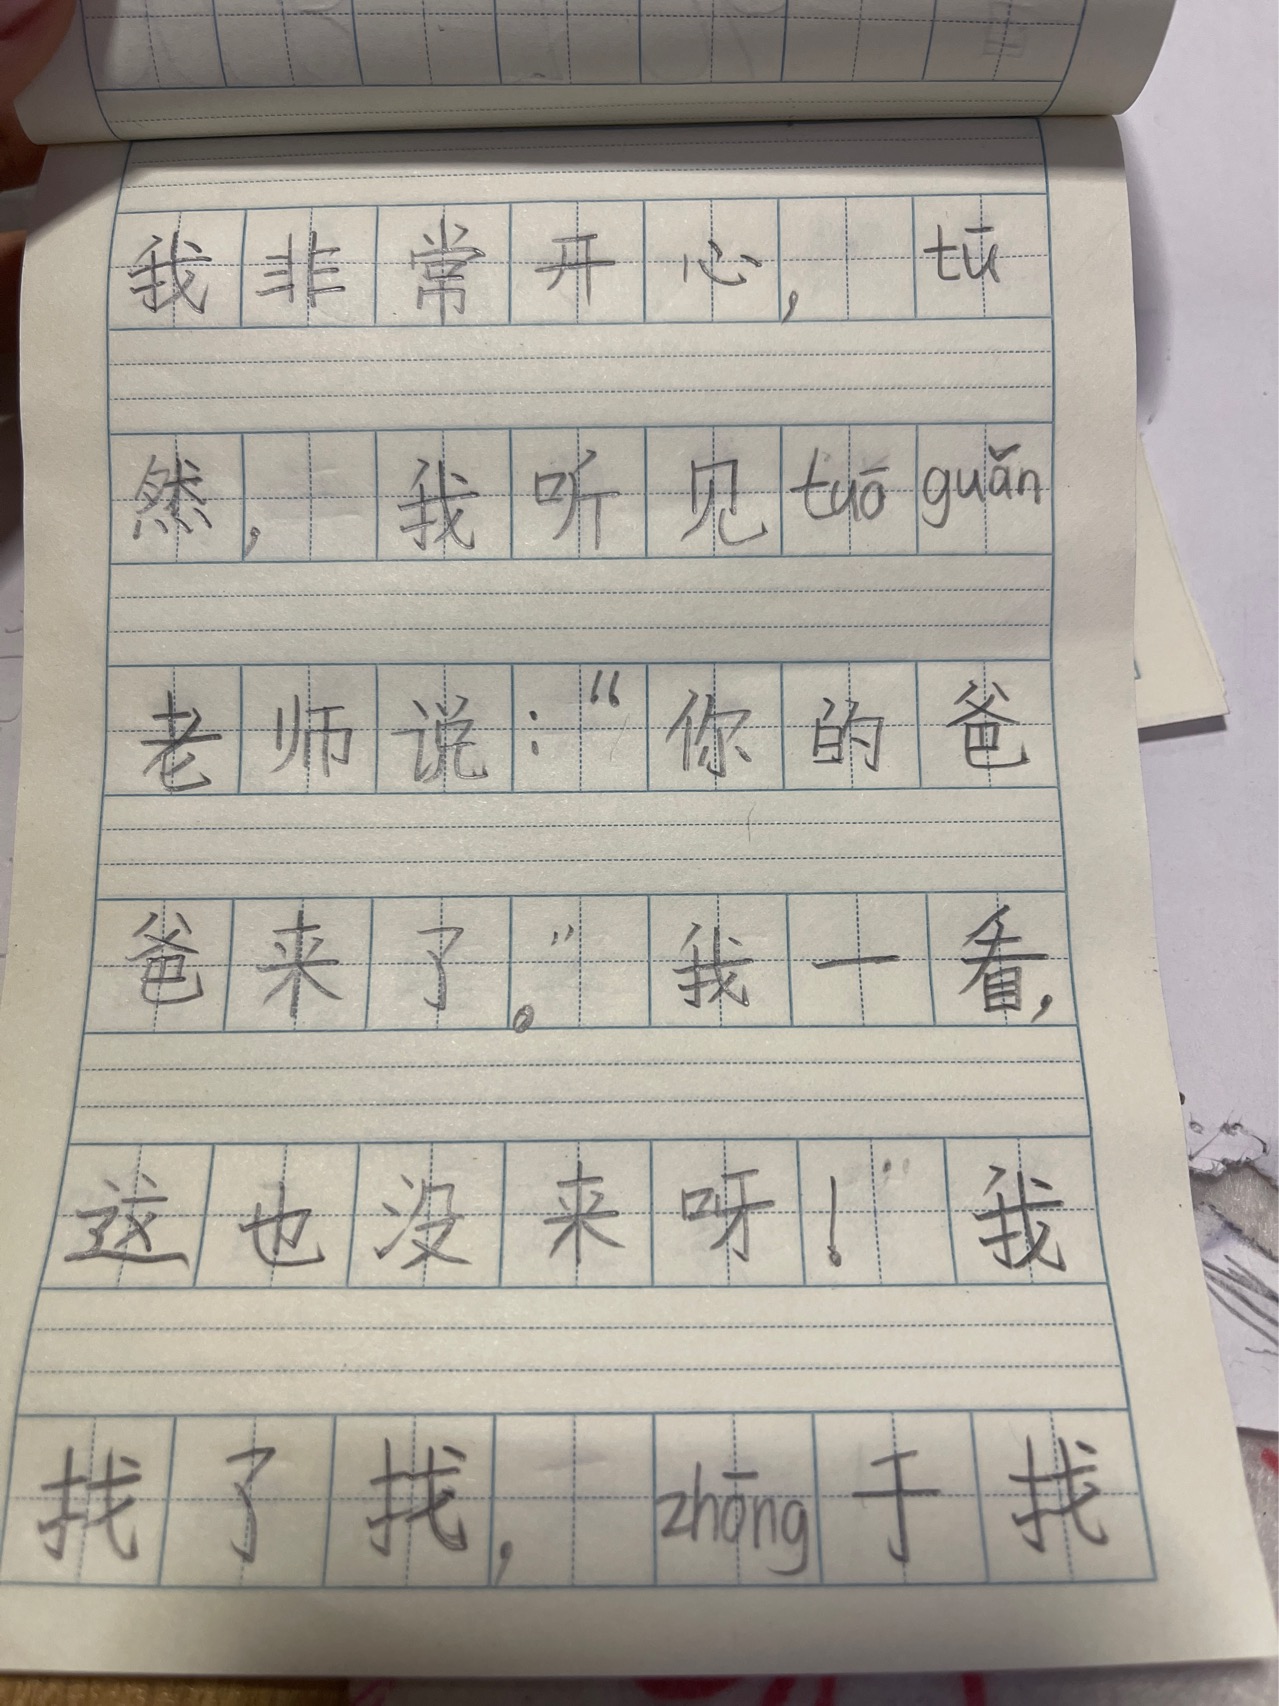 我非常开心，tū
然，我听见tuō guǎn
老师说：“你的爸
爸来了。”我一看，
这也没来呀！我
找了找，zhōng于找